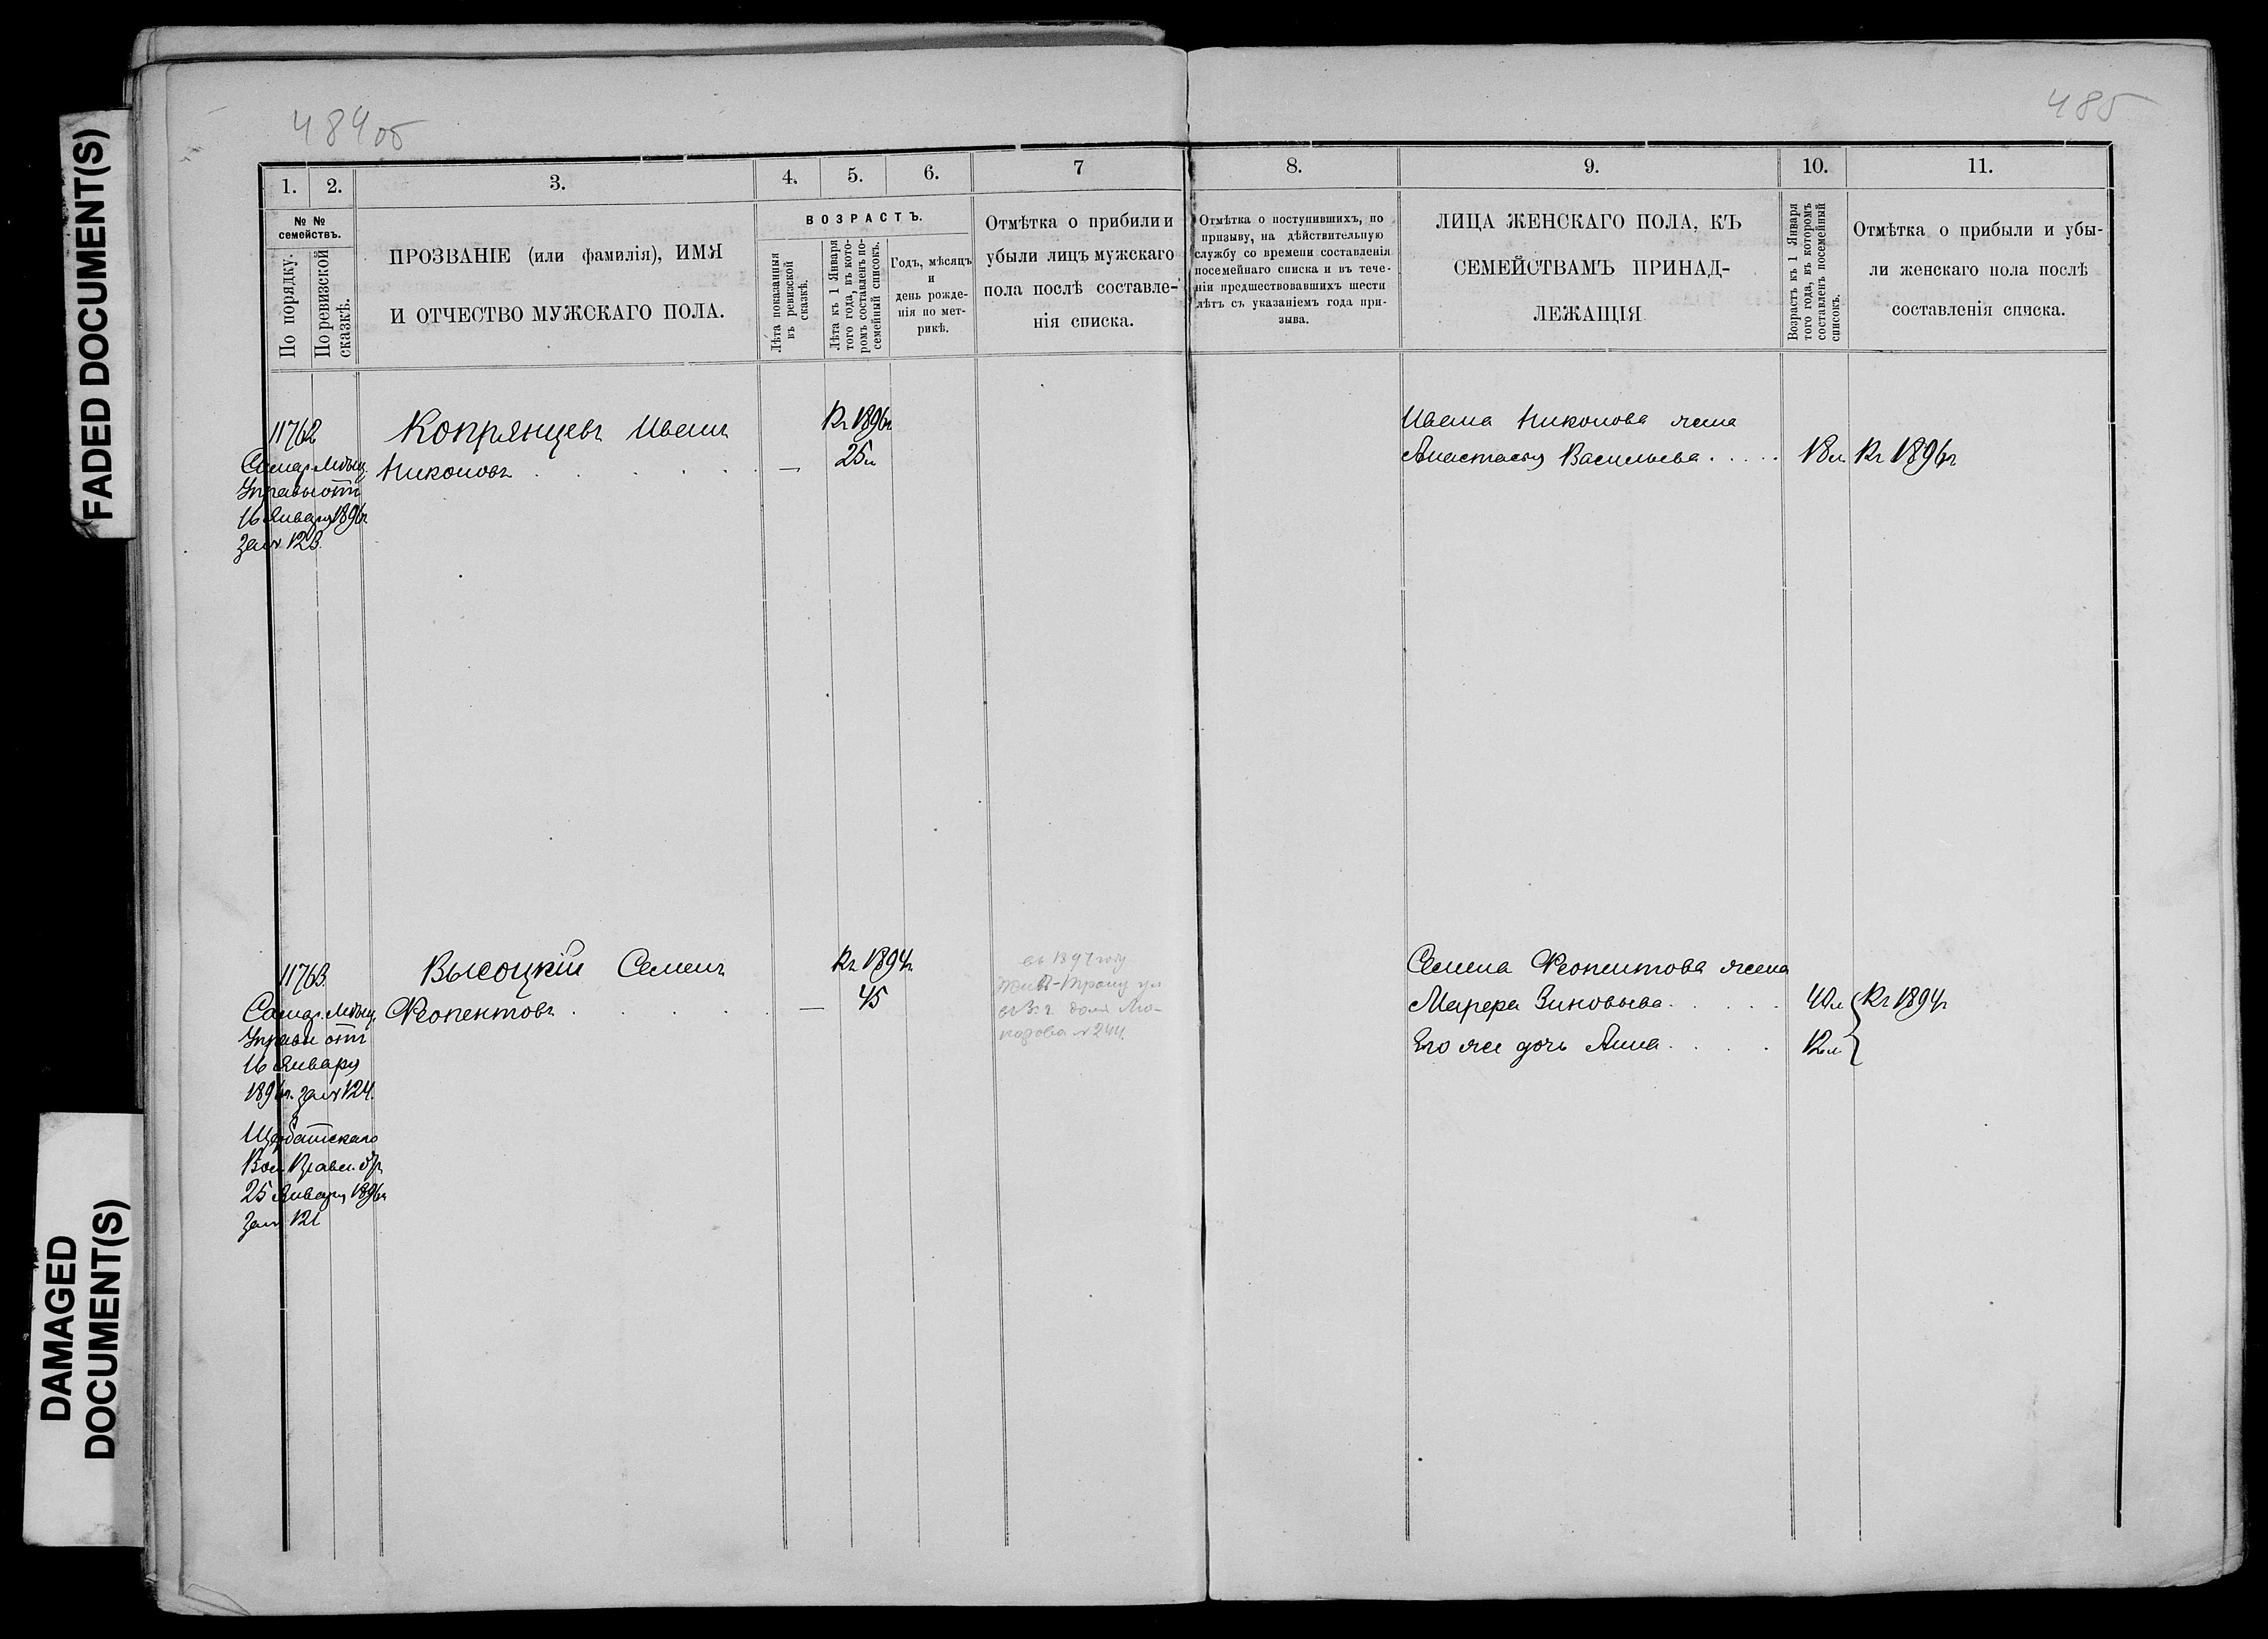 FADED DOCUMENT(S)
DAMAGED
DOCUMENT(S)
484об
485
1.
2.
3.
4.
5.
6.
7
8.
9.
10.
11.
№ №
семействъ.
По порядку.
По ревизской
сказкѣ.
ПРОЗВАНІЕ (или фамилія), ИМЯ
И ОТЧЕСТВО МУЖСКАГО ПОЛА.
ВОЗРАСТЪ.
Лѣта показанныя
въ ревизской
сказкѣ.
Лѣта къ 1 Января
того года, въ кото-
ромъ составленъ по-
семейный списокъ.
Годъ, мѣсяцъ
и
день рожде-
нія по мет-
рикѣ.
Отмѣтка о прибыли и
убыли лицъ мужскаго
пола послѣ составле-
нія списка.
Отмѣтка о поступившихъ, по
призыву, на дѣйствительную
службу со времени составленія
посемейнаго списка и въ тече-
ніи предшествовавшихъ шести
лѣтъ съ указаніемъ года при-
зыва.
ЛИЦА ЖЕНСКАГО ПОЛА, КЪ
СЕМЕЙСТВАМЪ ПРИНАД-
ЛЕЖАЩІЯ
Возрастъ къ 1 Января
того года, въ которомъ
составленъ посемейный
списокъ.
Отмѣтка о прибыли и убы-
ли женскаго пола послѣ
составленія списка.
11762
Самар. Мѣщ.
Управы отъ
16 Января 1896г
за № 123.
Копрянцевъ Иванъ
Никоновъ
—
Къ 1896г
25 л
Ивана Никонова жена
Анастасья Васильева
18 л. Къ 1896г
11763.
Самар. Мѣщ.
Управы отъ
16 Января
1896г. за № 124.
25 Января 1896г
за № 121
Высоцкій Семенъ
Феопентовъ
—
Къ 1894г
45
въ 1897 году
въ 3 ч. домъ Мо-
розова № 244.
Семена Феопентова жена
Марфа Зиновьева
40 л Къ 1894г
Его же дочь Анна
12 л